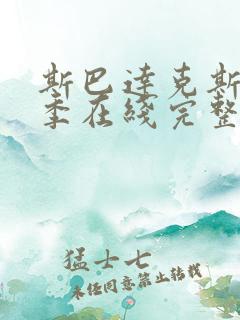 斯巴达克斯
季在线完整
猛士七
未经同意禁止转载